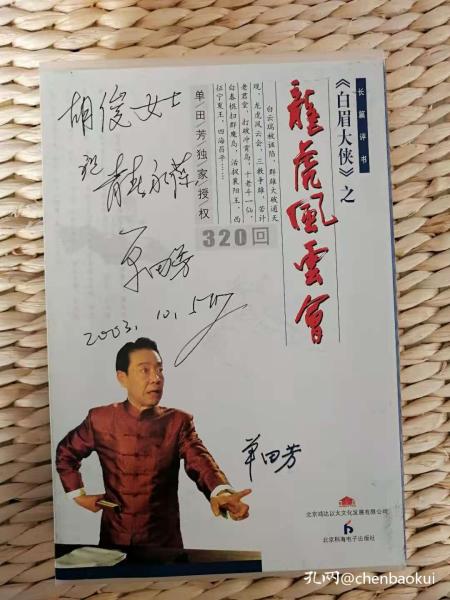 长篇评书
《白眉大侠》之
龍虎風雲會
白云瑞被诬陷，群雄大破通天
观，龙虎风云会，三教争雄，苦计
老君堂，打破冲霄岛，十老斗一仙，
群魔岛，活捉襄阳王，西
征宁夏王，四海昌平……
单/田/芳/独/家/授/权
320回
胡俊女士
祝
青春永葆
单田芳
2003.10.5
单田芳
北京鸿达以太文化发展有限公司
北京科海电子出版社
孔网@chenbaokui